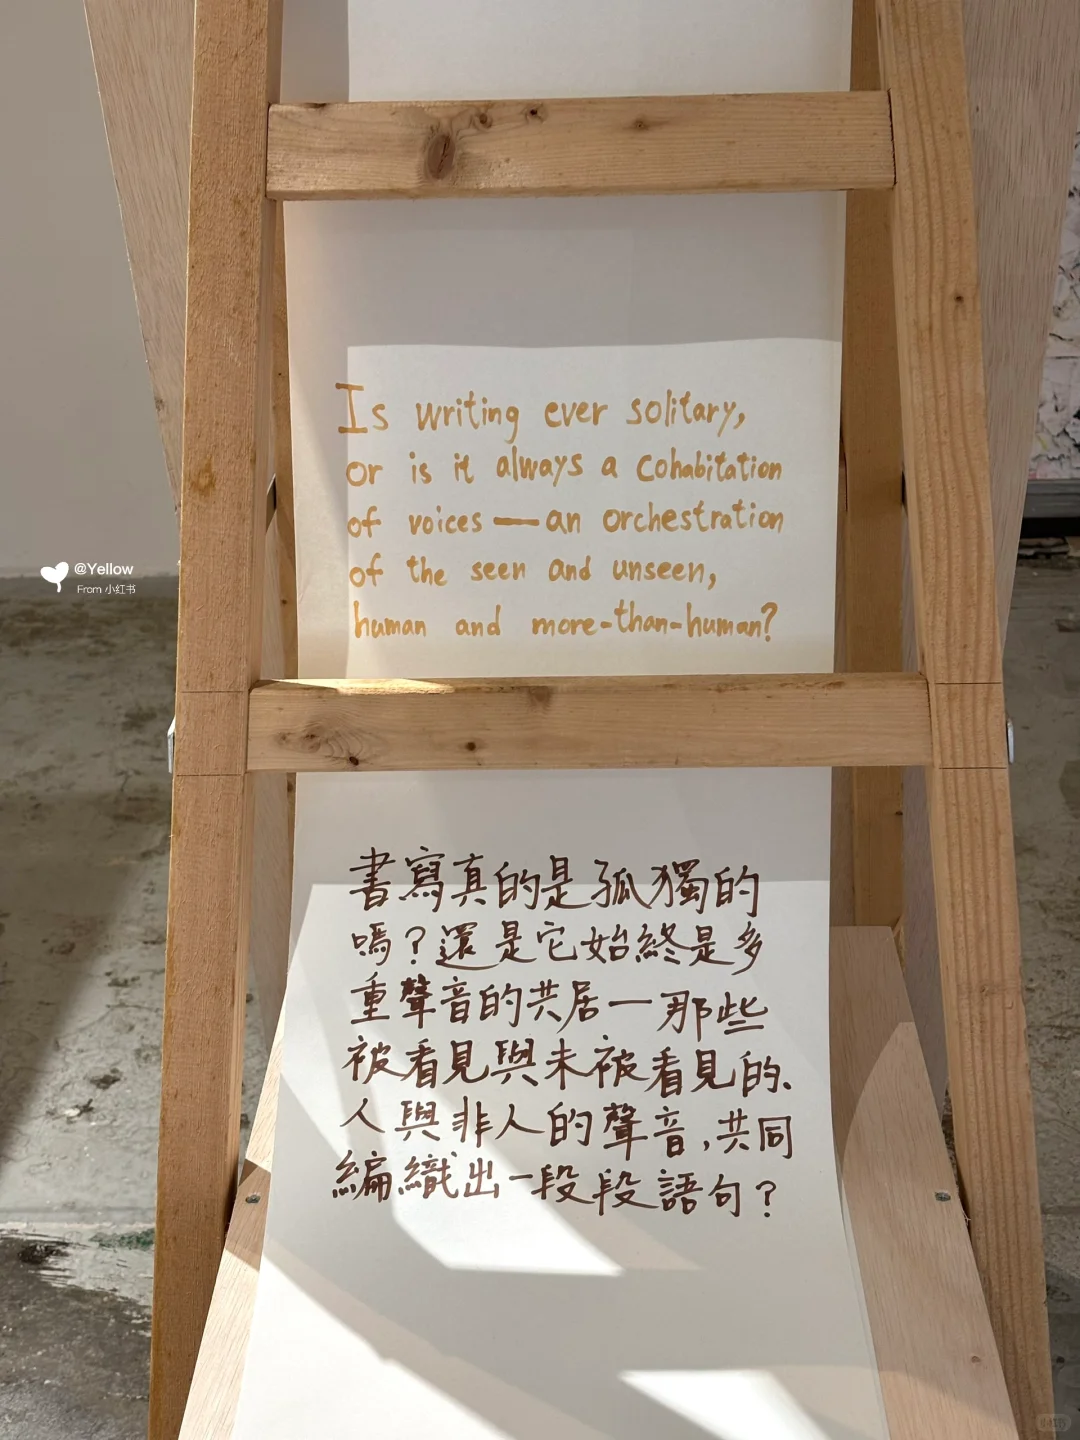 Is writing ever solitary,
or is it always a cohabitation
of voices — an orchestration
of the seen and unseen,
human and more-than-human?
書寫真的是孤獨的
嗎？還是它始終是多
重聲音的共居一那些
被看見與未被看見的、
人與非人的聲音,共同
編織出一段段語句？
@Yellow
From 小红书
小红书